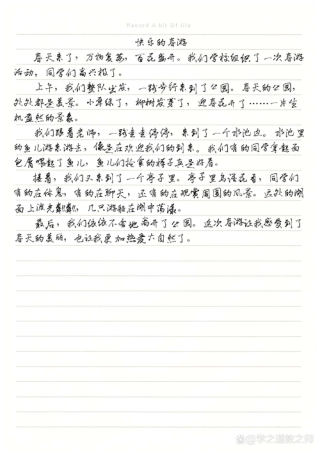 Record A bit Of life
快乐的春游
春天来了，万物复苏，百花盛开。我们学校组织了一次春游
活动，同学们高兴极了。
上午，我们整队出发，一路步行来到了公园。春天的公园，
处处都是美景。小草绿了，柳树发芽了，迎春花开了……一片生
机盎然的景象。
我们跟着老师，一路走走停停，来到了一个水池边。水池里
的鱼儿游来游去，像是在欢迎我们的到来。我们有的同学拿起面
包屑喂起了鱼儿，鱼儿们抢食的样子真是好看。
接着，我们又来到了一个亭子里。亭子里鸟语花香，同学们
有的在休息，有的在聊天，还有的在观赏周围的风景。远处的湖
面上波光粼粼，几只游船在湖中荡漾。
最后，我们依依不舍地离开了公园。这次春游让我感受到了
春天的美丽，也让我更加热爱大自然了。
@学之道教之师